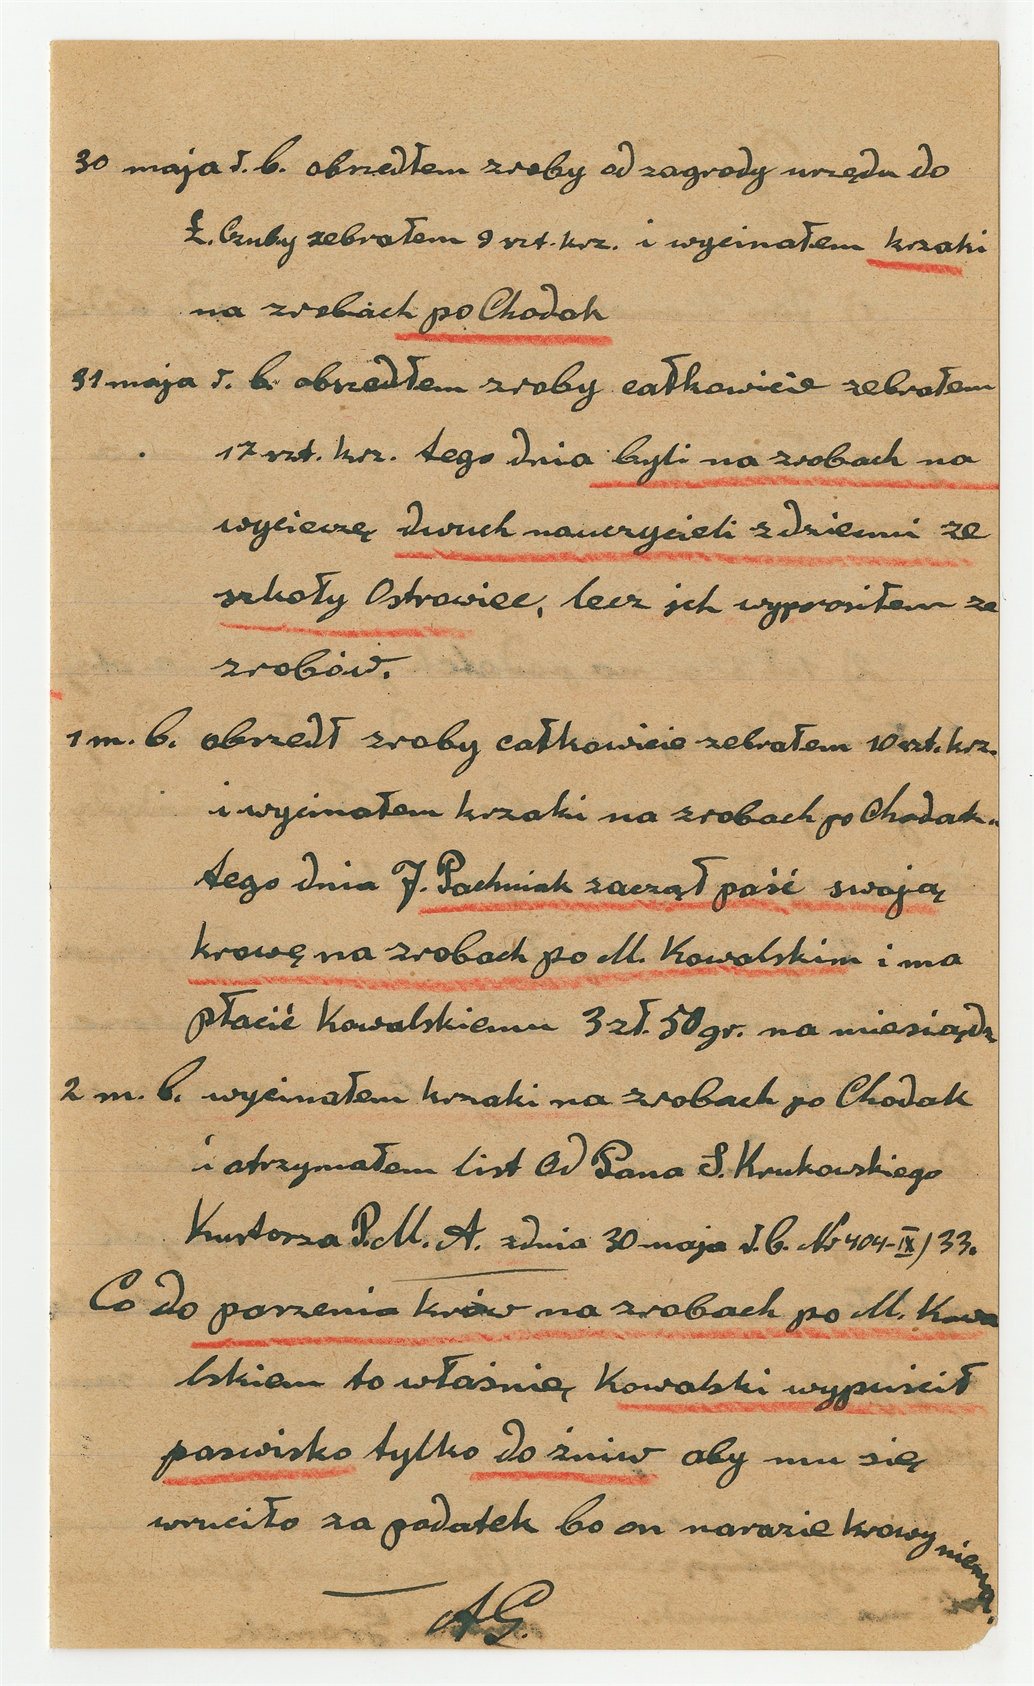 30 maja r. b. obszedłem zroby od zagrody urzędu do
Ł. Czuby zebrałem 9 szt. krz. i wycinałem krzaki
na zrobach po Chodak
31 maja r. b. obszedłem zroby całkowicie zebrałem
17 szt. krz. tego dnia byli na zrobach na
wycieczę dwuch nauczycieli z dziećmi ze
szkoły Ostrowiec, lecz ich wyprosiłem ze
zrobów.
1 m. b. obszedł zroby całkowicie zebrałem 10 szt. krz.
i wycinałem krzaki na zrobach po Chodak.
tego dnia J. Pachniak zaczął paść swoją
krowę na zrobach po M. Kowalskim i ma
płacić Kowalskiemu 3 zł. 50 gr. na miesiądz
2 m. b. wycinałem krzaki na zrobach po Chodak
i otrzymałem list Od Pana S. Krukowskiego
Kustorza P. M. A. z dnia 30 maja r. b. Nr 404-IX/33.
Co do parzenia krów na zrobach po M. Kowa
lskiem to właśnię Kowalski wypuścił
paswisko tylko do żniw aby mu się
wruciło za podatek bo on narazie krowy niema.
AG.